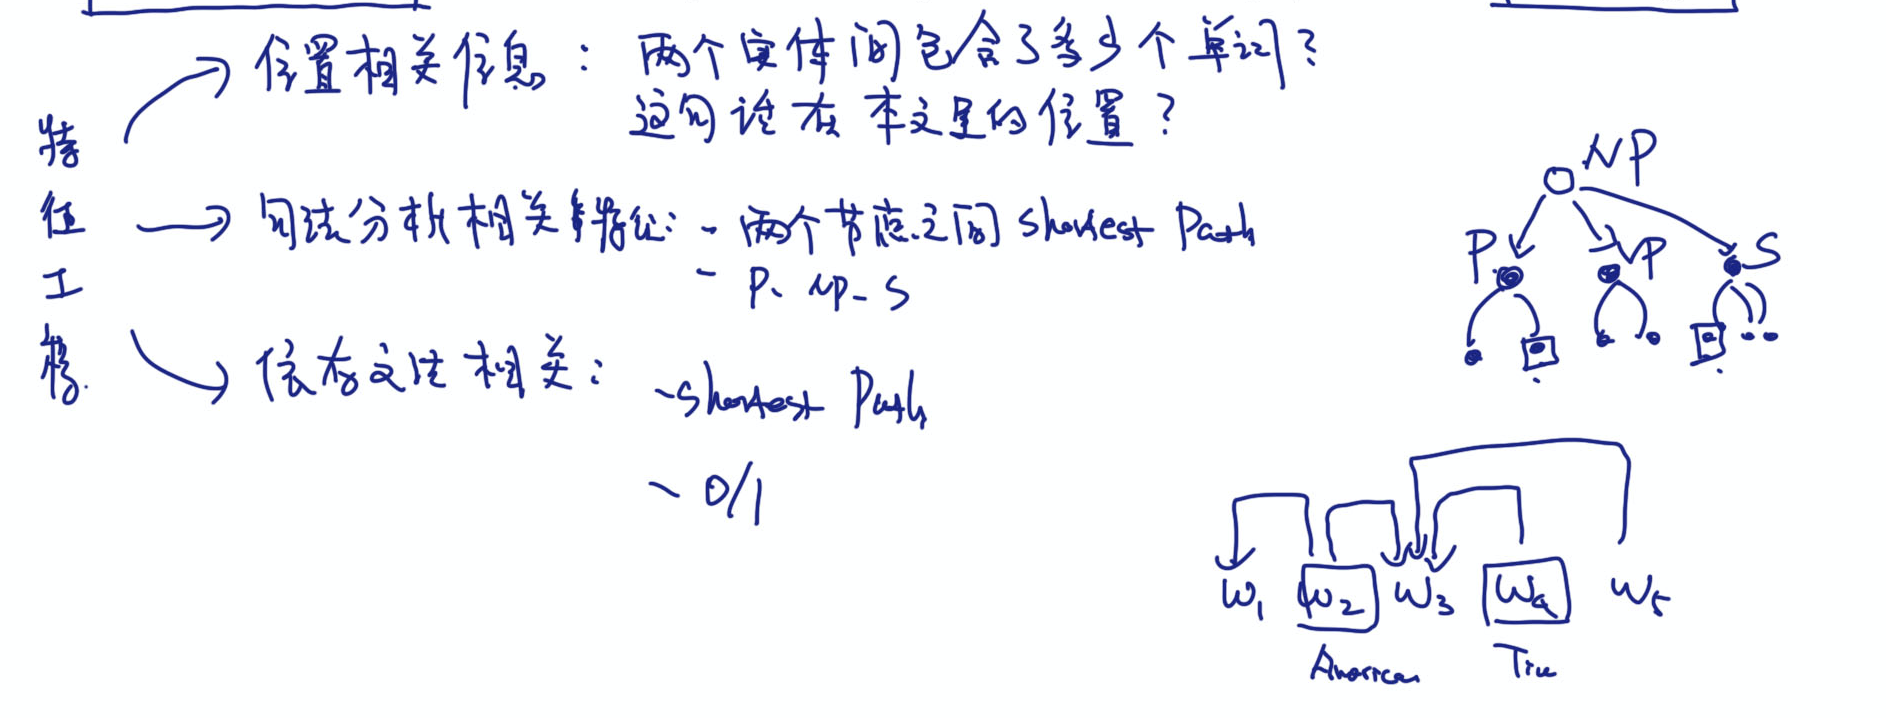 特征工程
位置相关信息： 两个实体间包含了多少个单词？
这句话在本文里的位置？
句法分析相关特征： - 两个节点之间 shortest Path
- P- NP- S
依存文法相关： - shortest Path
- 0/1
NP
P VP S
W1 W2 W3 W4 W5
American Tim